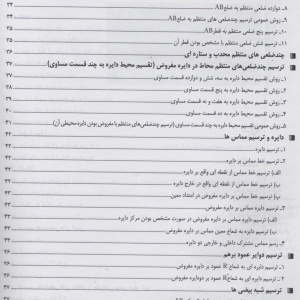 ۸ـ دوازده ضلعی منتظم به ضلع AB ۳۴
۹ـ روش عمومی ترسیم چندضلعی های منتظم به ضلع AB ۳۴
۱۰ـ ترسیم پنج ضلعی منتظم به قطر AB ۳۵
۱۱ـ ترسیم شش ضلعی منتظم با مشخص بودن قطر آن ۳۵
چندضلعی های منتظم محدب و ستاره ای ۳۶
ترسیم چندضلعی های منتظم محاط در دایره مفروض (تقسیم محیط دایره به چند قسمت مساوی) ۳۷
۱ـ روش تقسیم محیط دایره به سه، شش و دوازده قسمت مساوی
۲ـ روش تقسیم محیط دایره به پنج قسمت مساوی
۳ـ روش تقسیم محیط دایره به هفت و نه قسمت مساوی
۴ـ روش تقسیم محیط دایره به ده قسمت مساوی
۵ـ روش عمومی تقسیم محیط دایره به چند قسمت مساوی (ترسیم چندضلعی های منتظم با مفروض بودن دایره محیطی آن)
دایره و ترسیم مماس ها ۴۲
۱ـ ترسیم دایره ۴۲
۲ـ ترسیم خط مماس بر دایره ۴۲
الف) ترسیم خط مماس از نقطه ای واقع بر دایره ۴۲
ب) ترسیم خط مماس از نقطه ای واقع در خارج دایره ۴۲
پ) ترسیم خط مماس بر دایره مفروض در امتداد معین
۳ـ ترسیم دایره مماس بر دایره مفروض
الف) ترسیم دایره مماس بر دایره مفروض در صورت مشخص بودن مرکز دایره
ب) ترسیم دایره به شعاع معین مماس بر دایره مفروض
۴ـ رسم مماس مشترک داخلی و خارجی دو دایره
ترسیم دوایر عمود برهم
۱ـ ترسیم دایره ای به شعاع R عمود بر دایره مفروض
۲ـ ترسیم دایره ای به شعاع R عمود بر دو دایره مفروض
ترسیم شبه بیضی ها